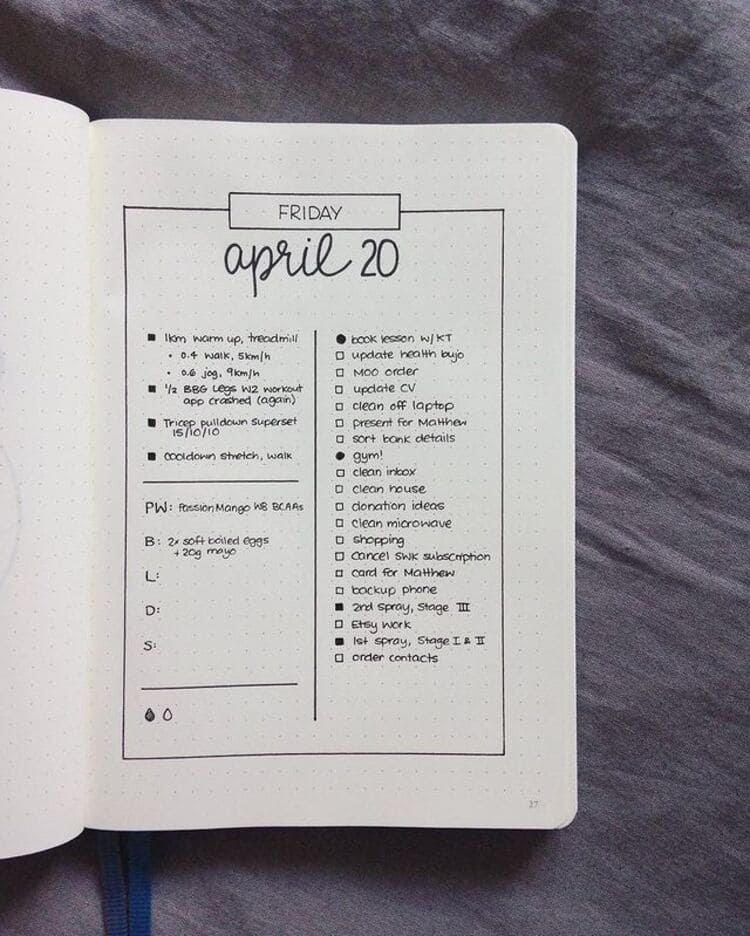 FRIDAY
april 20
1km warm up, treadmill
0.4 walk, 5km/h
0.6 jog, 9km/h
1/2 BBG Legs W2 workout
app crashed (again)
Tricep pulldown superset
15/10/10
Cooldown stretch, walk
PW: Passion Mango WB BCAAs
B: 2x soft boiled eggs
+ 20g mayo
L:
D:
S:
book lesson w/ KT
update health bujo
MOO order
update CV
clean off laptop
present for Matthew
sort bank details
gym!
clean inbox
clean house
donation ideas
clean microwave
shopping
Cancel SWK subscription
card for Matthew
backup phone
2nd spray, Stage III
Etsy work
1st spray, Stage I & II
order contacts
27